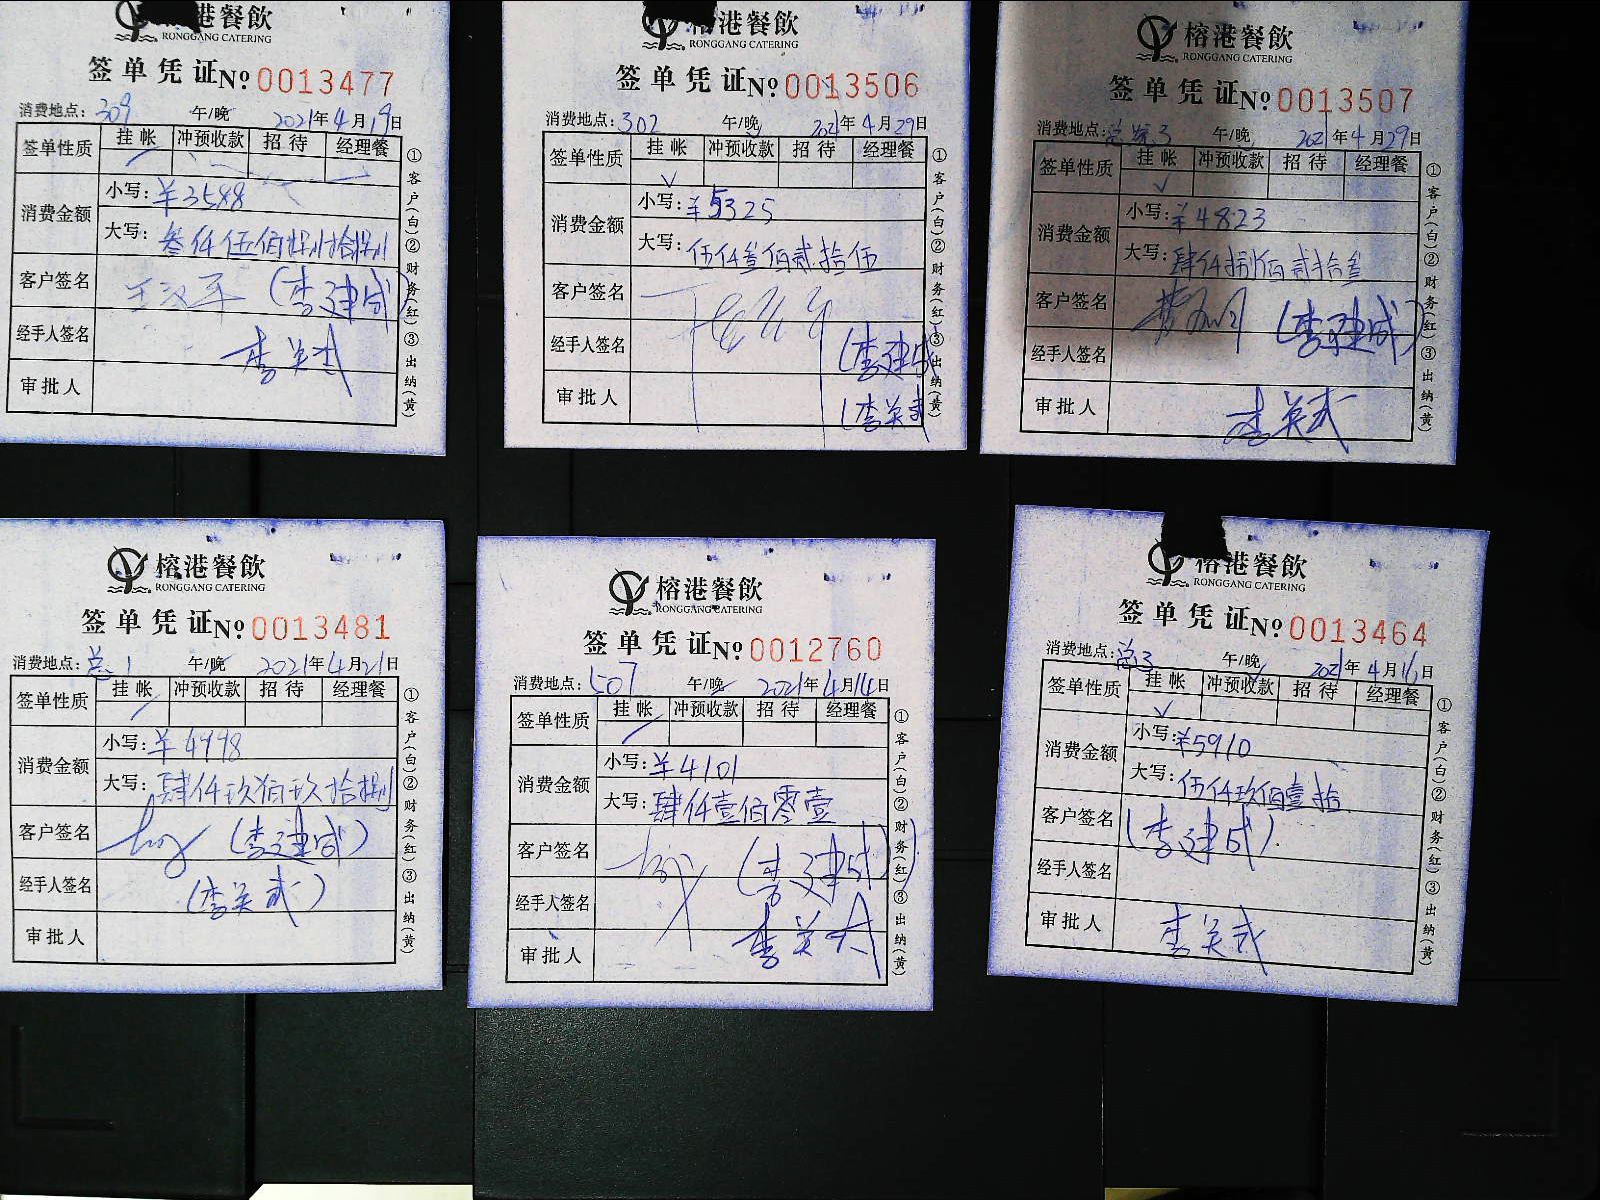 榕港餐飲
RONGGANG CATERING
签单凭证 № 0013477
消费地点: 309 午/晚 2021年4月19日
签单性质 挂帐 冲预收款 招待 经理餐
消费金额 小写: ¥3588
大写: 叁仟伍佰捌拾捌
客户签名 (李建成)
经手人签名
审批人
①客户(白)②财务(红)③出纳(黄)
榕港餐飲
RONGGANG CATERING
签单凭证 № 0013506
消费地点: 302 午/晚 2021年4月29日
签单性质 挂帐 冲预收款 招待 经理餐
✓
消费金额 小写: ¥5325
大写: 伍仟叁佰贰拾伍
客户签名
经手人签名 (李建成
审批人 (李英武
①客户(白)②财务(红)③出纳(黄)
榕港餐飲
RONGGANG CATERING
签单凭证 № 0013507
消费地点: 午/晚 2021年4月29日
签单性质 挂帐 冲预收款 招待 经理餐
✓
消费金额 小写: ¥4823
大写: 肆仟捌佰贰拾叁
客户签名 (李建成)
经手人签名
审批人 李英武
①客户(白)②财务(红)③出纳(黄)
榕港餐飲
RONGGANG CATERING
签单凭证 № 0013481
消费地点: 总1 午/晚 2021年4月21日
签单性质 挂帐 冲预收款 招待 经理餐
消费金额 小写: ¥4998
大写: 肆仟玖佰玖拾捌
客户签名 (李建成)
经手人签名 (李英武)
审批人
①客户(白)②财务(红)③出纳(黄)
榕港餐飲
RONGGANG CATERING
签单凭证 № 0012760
消费地点: 507 午/晚 2021年4月14日
签单性质 挂帐 冲预收款 招待 经理餐
消费金额 小写: ¥4101
大写: 肆仟壹佰零壹
客户签名 (李建成)
经手人签名
审批人 李英武
①客户(白)②财务(红)③出纳(黄)
榕港餐飲
RONGGANG CATERING
签单凭证 № 0013464
消费地点: 总3 午/晚 2021年4月11日
签单性质 挂帐 冲预收款 招待 经理餐
✓
消费金额 小写: ¥5910
大写: 伍仟玖佰壹拾
客户签名 (李建成)
经手人签名
审批人 李英武
①客户(白)②财务(红)③出纳(黄)